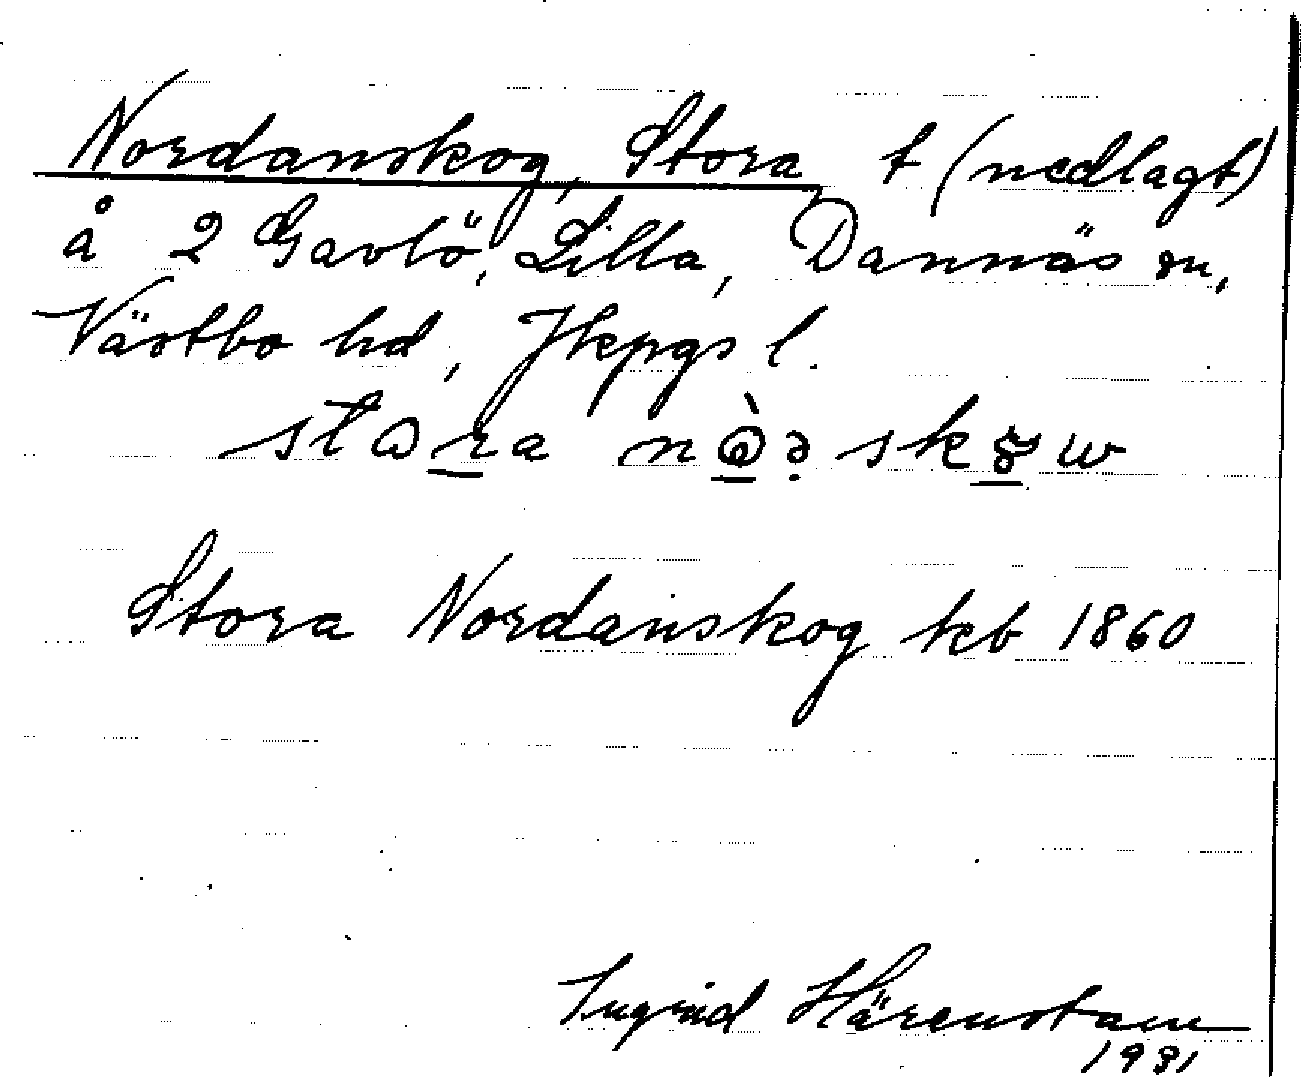 Nordanskog, Stora t (nedlagt)
å 2 Gavlö, Lilla, Dannäs sn,
Västbo hd, Jkpgs l.
Stora Nordanskog kb 1860
Ingrid Härenstam
1931